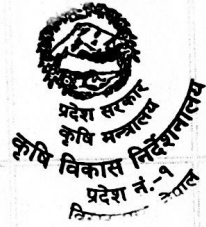 प्रदेश सरकार
कृषि मन्त्रालय
कृषि विकास निर्देशनालय
प्रदेश नं.-१
नेपाल